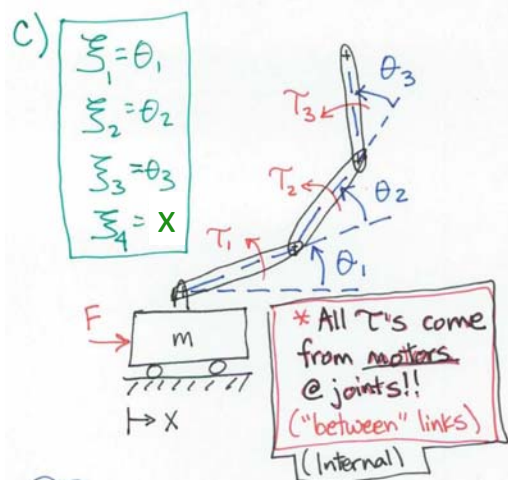 C)
ξ₁=θ₁
ξ₂=θ₂
ξ₃=θ₃
ξ₄= X
θ₃
τ₃
τ₂
θ₂
τ₁
θ₁
F
m
X
* All τ's come
from motors
@ joints!!
("between" links)
(Internal)